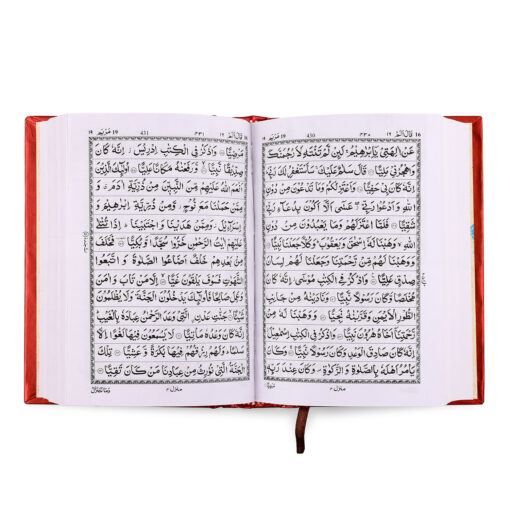 16 قال الم ١٦ ٤٣٠ 430 19 مريم ١٩
عَنْ اٰلِهَتِیْ یٰۤاِبْرٰهِیْمُ ۚ لَئِنْ لَّمْ تَنْتَهِ لَاَرْجُمَنَّكَ
وَاهْجُرْنِیْ مَلِیًّا ۝ قَالَ سَلٰمٌ عَلَیْكَ ۚ سَاَسْتَغْفِرُ لَكَ رَبِّیْ ؕ
اِنَّهٗ كَانَ بِیْ حَفِیًّا ۝ وَاَعْتَزِلُكُمْ وَمَا تَدْعُوْنَ مِنْ دُوْنِ
اللّٰهِ وَاَدْعُوْا رَبِّیْ ۖ عَسٰۤی اَلَّاۤ اَكُوْنَ بِدُعَآءِ رَبِّیْ
شَقِیًّا ۝ فَلَمَّا اعْتَزَلَهُمْ وَمَا یَعْبُدُوْنَ مِنْ دُوْنِ
اللّٰهِ ۙ وَهَبْنَا لَهٗۤ اِسْحٰقَ وَیَعْقُوْبَ ؕ وَكُلًّا جَعَلْنَا نَبِیًّا ۝
وَوَهَبْنَا لَهُمْ مِّنْ رَّحْمَتِنَا وَجَعَلْنَا لَهُمْ لِسَانَ
صِدْقٍ عَلِیًّا ۝ وَاذْكُرْ فِی الْكِتٰبِ مُوْسٰۤی ؗ اِنَّهٗ كَانَ
مُخْلَصًا وَّكَانَ رَسُوْلًا نَّبِیًّا ۝ وَنَادَیْنٰهُ مِنْ جَانِبِ
الطُّوْرِ الْاَیْمَنِ وَقَرَّبْنٰهُ نَجِیًّا ۝ وَوَهَبْنَا لَهٗ مِنْ
رَّحْمَتِنَاۤ اَخَاهُ هٰرُوْنَ نَبِیًّا ۝ وَاذْكُرْ فِی الْكِتٰبِ اِسْمٰعِیْلَ ؗ
اِنَّهٗ كَانَ صَادِقَ الْوَعْدِ وَكَانَ رَسُوْلًا نَّبِیًّا ۝ وَكَانَ
یَاْمُرُ اَهْلَهٗ بِالصَّلٰوةِ وَالزَّكٰوةِ ۪ وَكَانَ عِنْدَ رَبِّهٖ
منزل ٤
قال الم ١٦ ٤٣١ 431 19 مريم ١٩
مَرْضِیًّا ۝ وَاذْكُرْ فِی الْكِتٰبِ اِدْرِیْسَ ؗ اِنَّهٗ كَانَ
صِدِّیْقًا نَّبِیًّا ۝ وَّرَفَعْنٰهُ مَكَانًا عَلِیًّا ۝ اُولٰٓئِكَ الَّذِیْنَ
اَنْعَمَ اللّٰهُ عَلَیْهِمْ مِّنَ النَّبِیّٖنَ مِنْ ذُرِّیَّةِ اٰدَمَ ۗ وَ
مِمَّنْ حَمَلْنَا مَعَ نُوْحٍ ؗ وَّمِنْ ذُرِّیَّةِ اِبْرٰهِیْمَ وَ
اِسْرَآءِیْلَ ؗ وَمِمَّنْ هَدَیْنَا وَاجْتَبَیْنَا ؕ اِذَا تُتْلٰی
عَلَیْهِمْ اٰیٰتُ الرَّحْمٰنِ خَرُّوْا سُجَّدًا وَّبُكِیًّا ۝ فَخَلَفَ
مِنْ بَعْدِهِمْ خَلْفٌ اَضَاعُوا الصَّلٰوةَ وَاتَّبَعُوا
الشَّهَوٰتِ فَسَوْفَ یَلْقَوْنَ غَیًّا ۝ اِلَّا مَنْ تَابَ وَاٰمَنَ
وَعَمِلَ صَالِحًا فَاُولٰٓئِكَ یَدْخُلُوْنَ الْجَنَّةَ وَلَا یُظْلَمُوْنَ
شَیْئًا ۝ جَنّٰتِ عَدْنِ ِ۟الَّتِیْ وَعَدَ الرَّحْمٰنُ عِبَادَهٗ بِالْغَیْبِ ؕ
اِنَّهٗ كَانَ وَعْدُهٗ مَاْتِیًّا ۝ لَا یَسْمَعُوْنَ فِیْهَا لَغْوًا اِلَّا
سَلٰمًا ؕ وَلَهُمْ رِزْقُهُمْ فِیْهَا بُكْرَةً وَّعَشِیًّا ۝ تِلْكَ
الْجَنَّةُ الَّتِیْ نُوْرِثُ مِنْ عِبَادِنَا مَنْ كَانَ تَقِیًّا ۝
منزل ٤
وما نتنزل